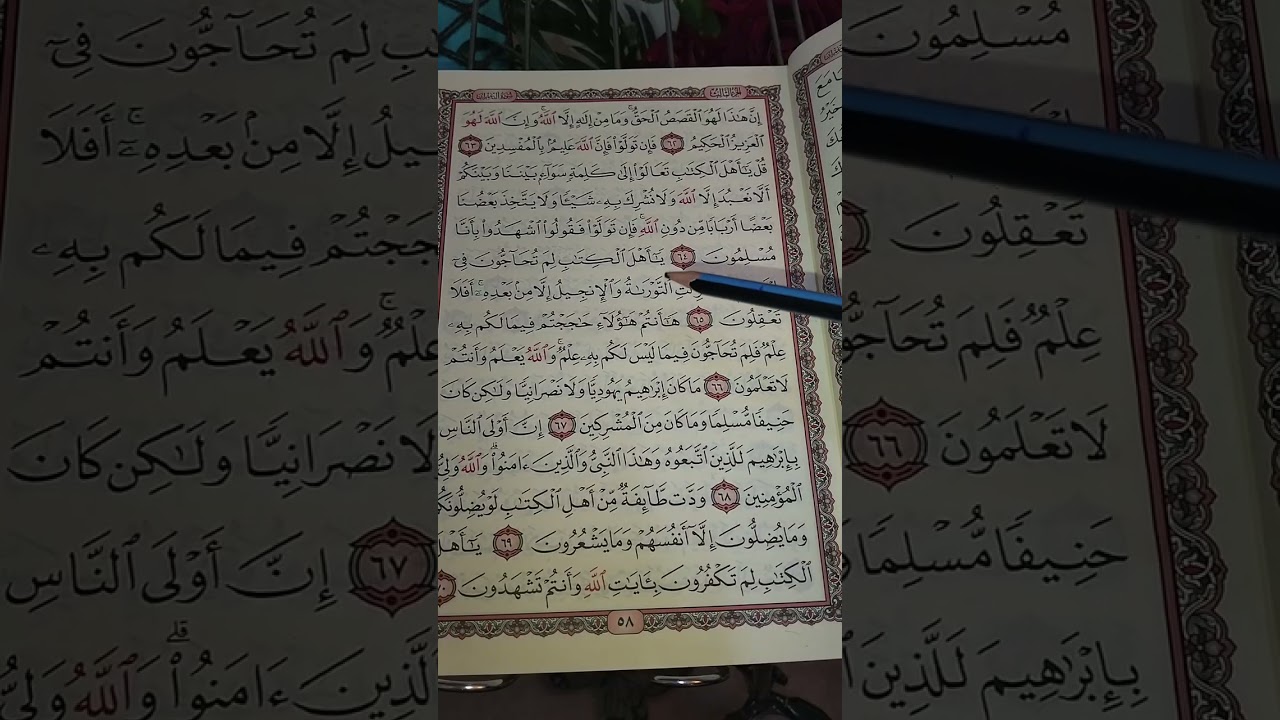 الجزء الثالث
سورة آل عمران
إِنَّ هَٰذَا لَهُوَ ٱلْقَصَصُ ٱلْحَقُّ ۚ وَمَا مِنْ إِلَٰهٍ إِلَّا ٱللَّهُ ۚ وَإِنَّ ٱللَّهَ لَهُوَ
ٱلْعَزِيزُ ٱلْحَكِيمُ ٦٢ فَإِن تَوَلَّوْا۟ فَإِنَّ ٱللَّهَ عَلِيمٌۢ بِٱلْمُفْسِدِينَ ٦٣
قُلْ يَٰٓأَهْلَ ٱلْكِتَٰبِ تَعَالَوْا۟ إِلَىٰ كَلِمَةٍ سَوَآءٍۭ بَيْنَنَا وَبَيْنَكُمْ
أَلَّا نَعْبُدَ إِلَّا ٱللَّهَ وَلَا نُشْرِكَ بِهِۦ شَيْـًٔا وَلَا يَتَّخِذَ بَعْضُنَا
بَعْضًا أَرْبَابًا مِّن دُونِ ٱللَّهِ ۚ فَإِن تَوَلَّوْا۟ فَقُولُوا۟ ٱشْهَدُوا۟ بِأَنَّا
مُسْلِمُونَ ٦٤ يَٰٓأَهْلَ ٱلْكِتَٰبِ لِمَ تُحَآجُّونَ فِىٓ
ٱلتَّوْرَىٰةُ وَٱلْإِنجِيلُ إِلَّا مِنۢ بَعْدِهِۦٓ ۚ أَفَلَا
تَعْقِلُونَ ٦٥ هَٰٓأَنتُمْ هَٰٓؤُلَآءِ حَٰجَجْتُمْ فِيمَا لَكُم بِهِۦ
عِلْمٌ فَلِمَ تُحَآجُّونَ فِيمَا لَيْسَ لَكُم بِهِۦ عِلْمٌ ۚ وَٱللَّهُ يَعْلَمُ وَأَنتُمْ
لَا تَعْلَمُونَ ٦٦ مَا كَانَ إِبْرَٰهِيمُ يَهُودِيًّا وَلَا نَصْرَانِيًّا وَلَٰكِن كَانَ
حَنِيفًا مُّسْلِمًا وَمَا كَانَ مِنَ ٱلْمُشْرِكِينَ ٦٧ إِنَّ أَوْلَى ٱلنَّاسِ
بِإِبْرَٰهِيمَ لَلَّذِينَ ٱتَّبَعُوهُ وَهَٰذَا ٱلنَّبِىُّ وَٱلَّذِينَ ءَامَنُوا۟ ۗ وَٱللَّهُ وَلِىُّ
ٱلْمُؤْمِنِينَ ٦٨ وَدَّت طَّآئِفَةٌ مِّنْ أَهْلِ ٱلْكِتَٰبِ لَوْ يُضِلُّونَكُ
وَمَا يُضِلُّونَ إِلَّآ أَنفُسَهُمْ وَمَا يَشْعُرُونَ ٦٩ يَٰٓأَهْلَ
ٱلْكِتَٰبِ لِمَ تَكْفُرُونَ بِـَٔايَٰتِ ٱللَّهِ وَأَنتُمْ تَشْهَدُونَ ٧٠
٥٨